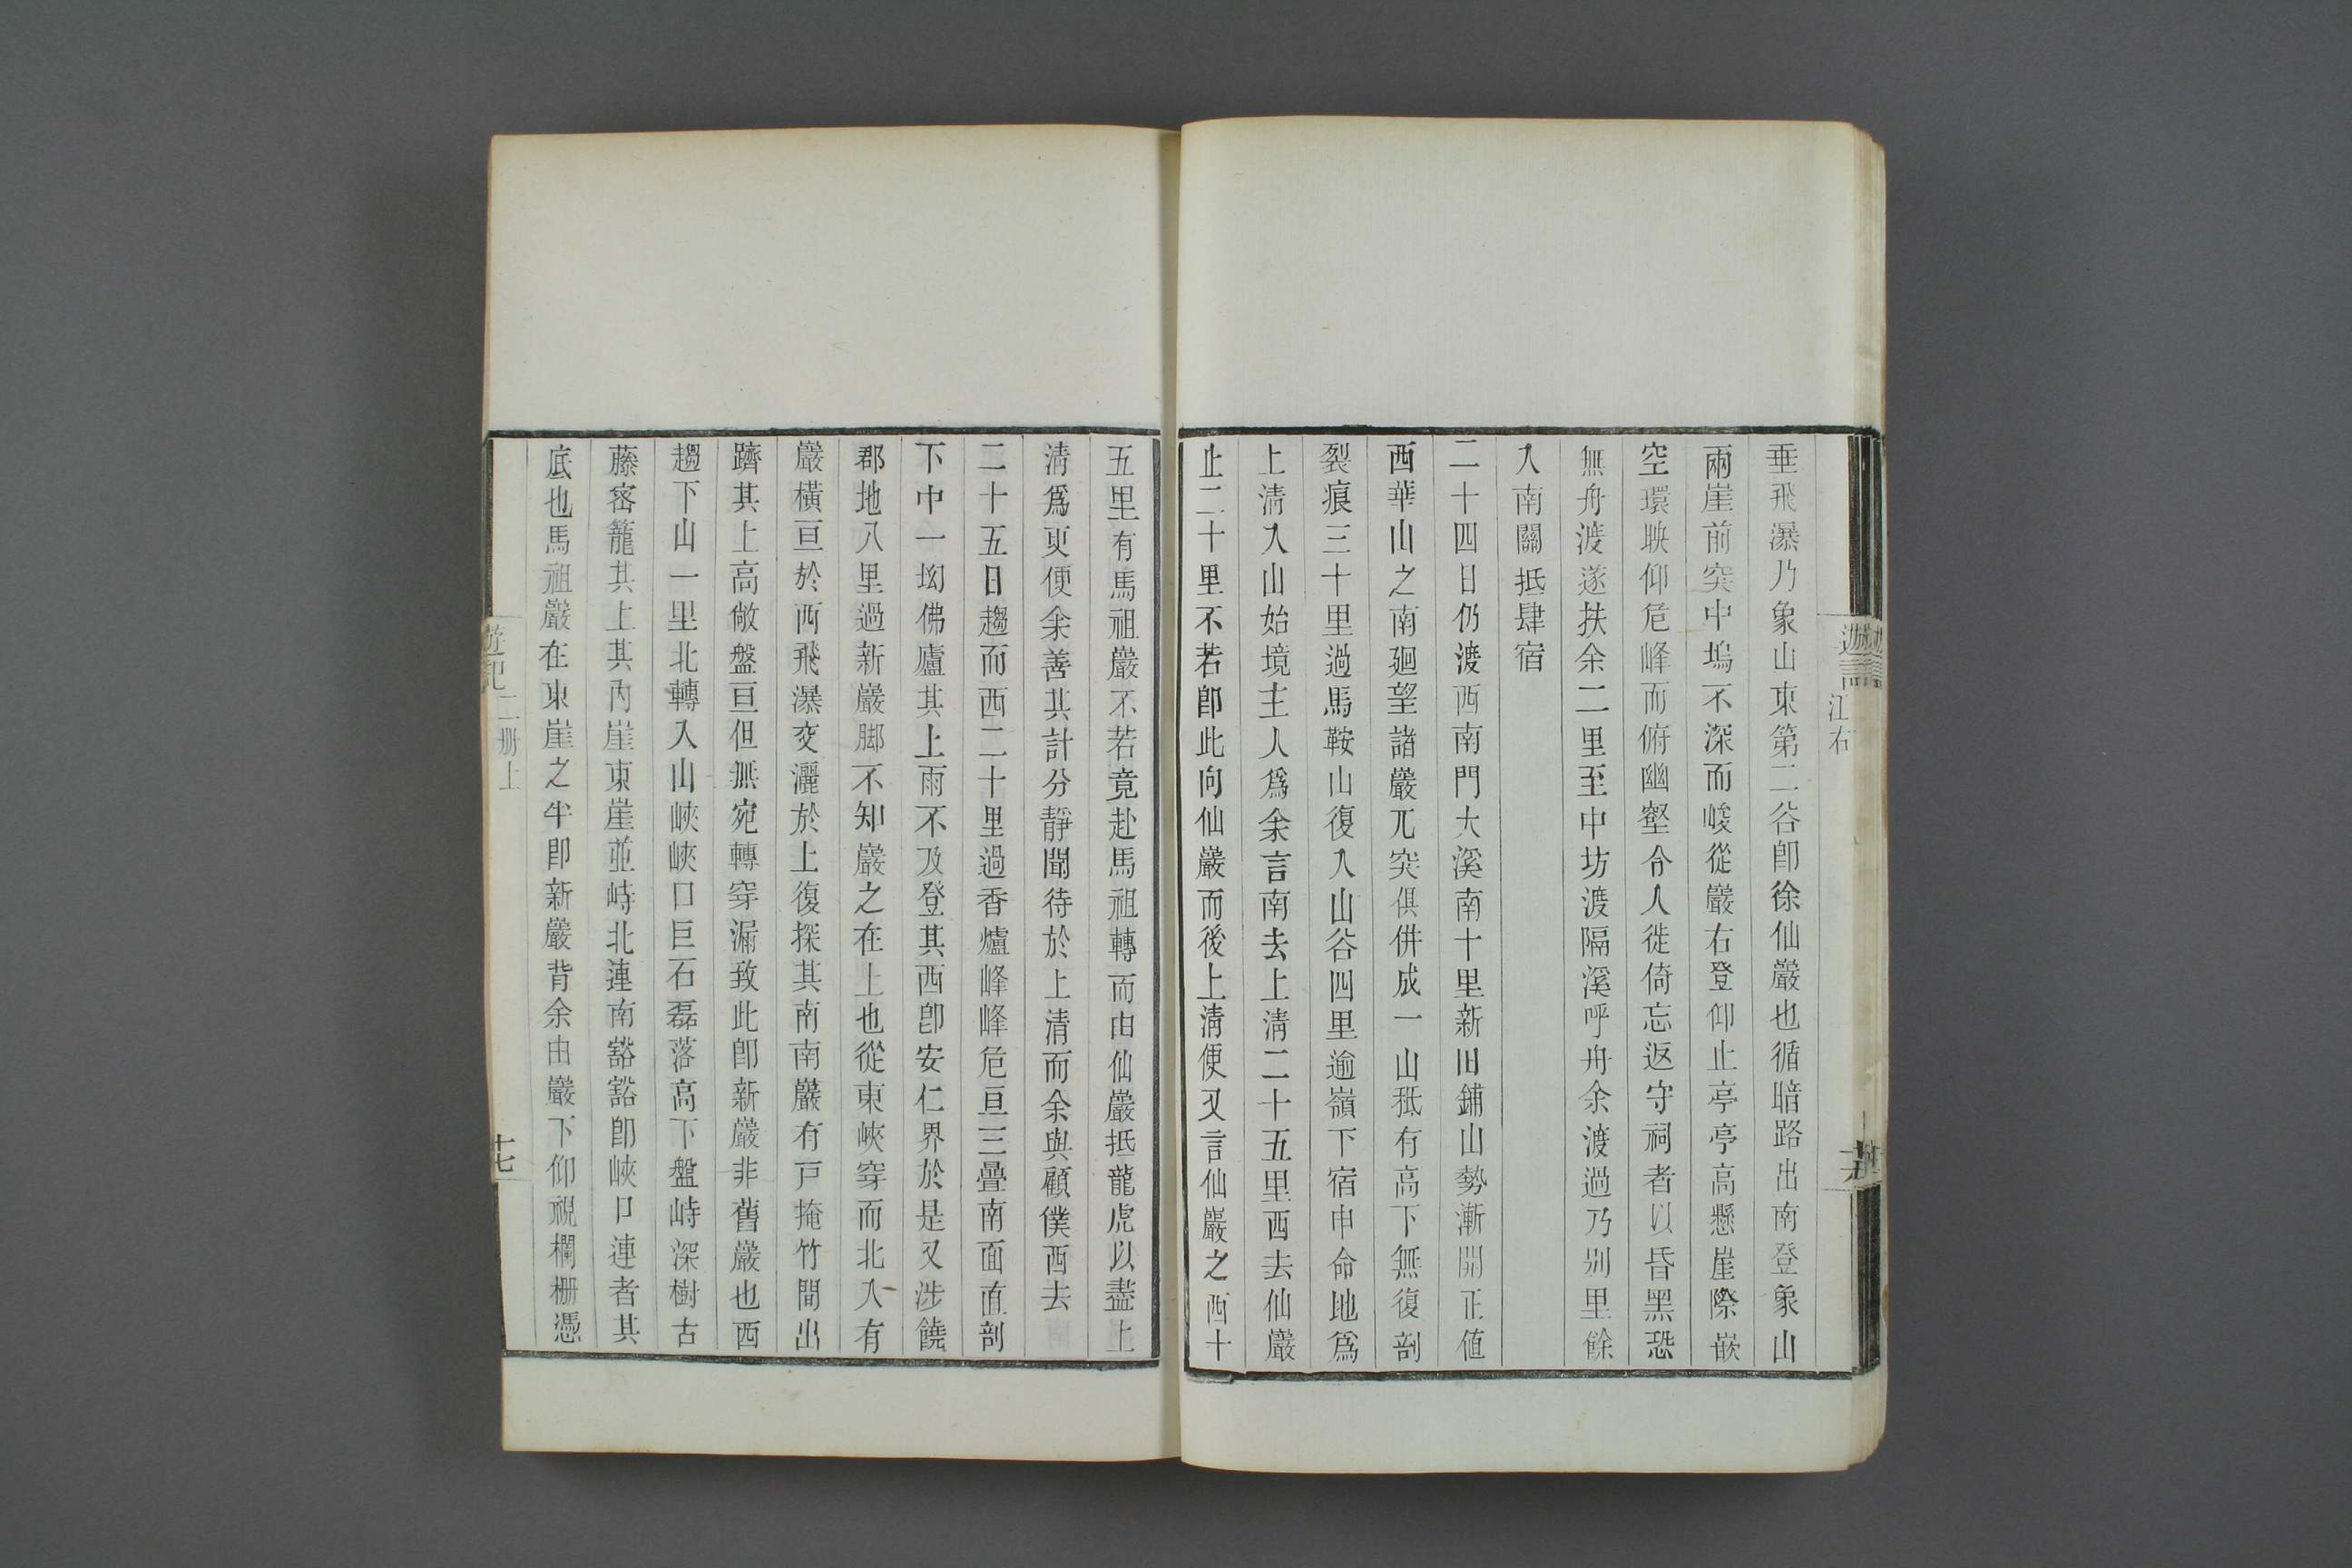 垂飛瀑乃象山東第二谷卽徐仙巖也循暗路出南登象山
兩崖前突中塢不深而峻從巖右登仰止亭亭高懸崖際嵌
空環映仰危峰而俯幽壑令人徙倚忘返守祠者以昏黑恐
無舟渡遂扶余二里至中坊渡隔溪呼舟余渡過乃別里餘
入南關抵肆宿
二十四日仍渡西南門大溪南十里新田鋪山勢漸開正値
西華山之南廻望諸巖兀突俱併成一山秪有高下無復剖
裂痕三十里過馬鞍山復入山谷四里逾嶺下宿申命地爲
上淸入山始境主人爲余言南去上淸二十五里西去仙巖
止二十里不若卽此向仙巖而後上淸便又言仙巖之西十
江右
五里有馬祖巖不若竟赴馬祖轉而由仙巖抵龍虎以盡上
淸爲更便余善其計分靜聞待於上清而余與顧僕西去
二十五日趨而西二十里過香爐峰峰危亘三疊南面直剖
下中一坳佛廬其上雨不及登其西卽安仁界於是又涉饒
郡地八里過新巖脚不知巖之在上也從東峽穿而北入有
巖橫亘於西飛瀑交灑於上復探其南南巖有戸掩竹間出
躋其上高敞盤亘但無宛轉穿漏致此卽新巖非舊巖也西
趨下山一里北轉入山峽峽口巨石磊落高下盤峙深樹古
藤密籠其上其內崖東崖並峙北連南豁豁卽峽口連者其
底也馬祖巖在東崖之半卽新巖背余由巖下仰視欄柵憑
遊記
二册上
十七